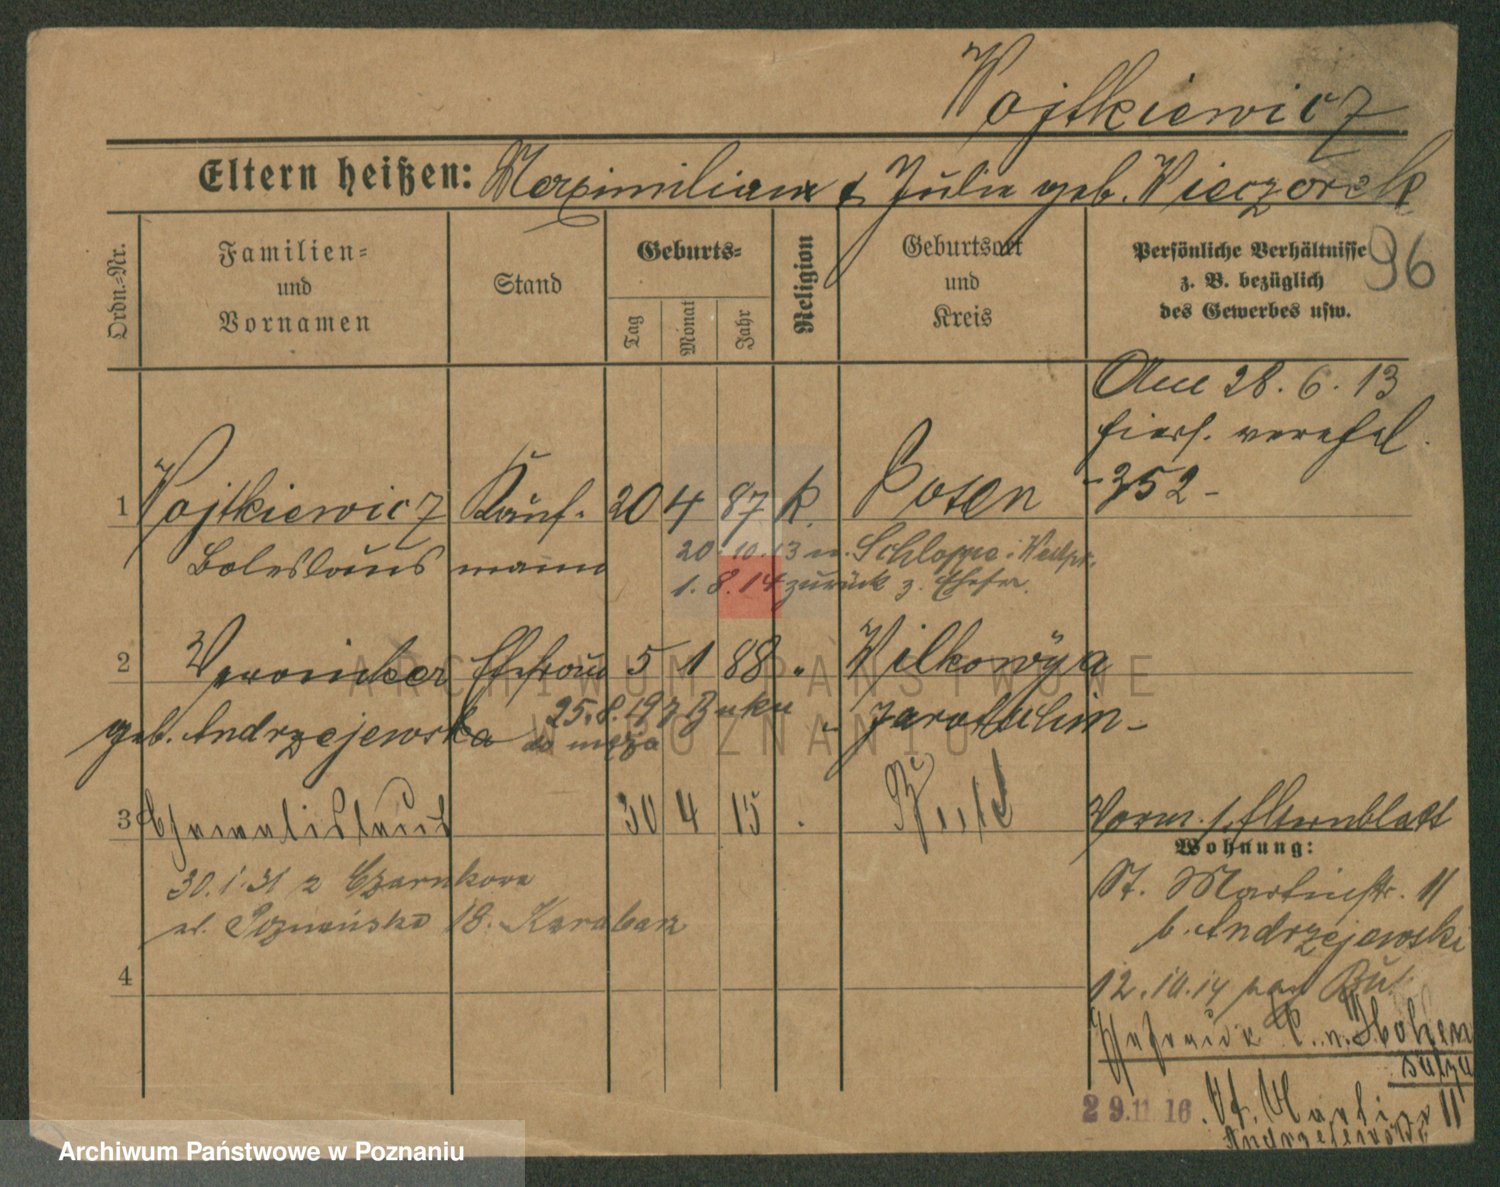 Wojtkiewicz
Eltern heißen: Maximilian & Julie geb. Wieczorek
Ordn.=Nr.
Familien=
und
Vornamen
Stand
Geburts=
Tag
Monat
Jahr
Religion
Geburtsort
und
Kreis
Persönliche Verhältnisse
z. B. bezüglich
des Gewerbes usw.
96
Am 28. 6. 13
hiers. verehel.
-352-
1 Wojtkiewicz Kauf- 20 4 87 k. Posen
Boleslaus mann
20.10.13 n. Schloppe i. Westpr.
1. 8. 14 zurück z. Ehefr.
2 Veronika Ehefrau 5 1 88 " Wilkowya
geb. Andrzejewska Jarotschin -
25.8.19 z Buku
do męża
3 30 4 15
Vorm. s. Elternblatt
Wohnung:
30.1.31 z Czarnkowa
ul. Poznańska 18.
St. Martinstr. 11
b. Andrzejewski
4
12.10.14 nach Buk
Ehefrau v. Hohen
salza
29.11.16. St. Martin 11
Andrzejewski
ARCHIWUM PAŃSTWOWE
W POZNANIU
Archiwum Państwowe w Poznaniu